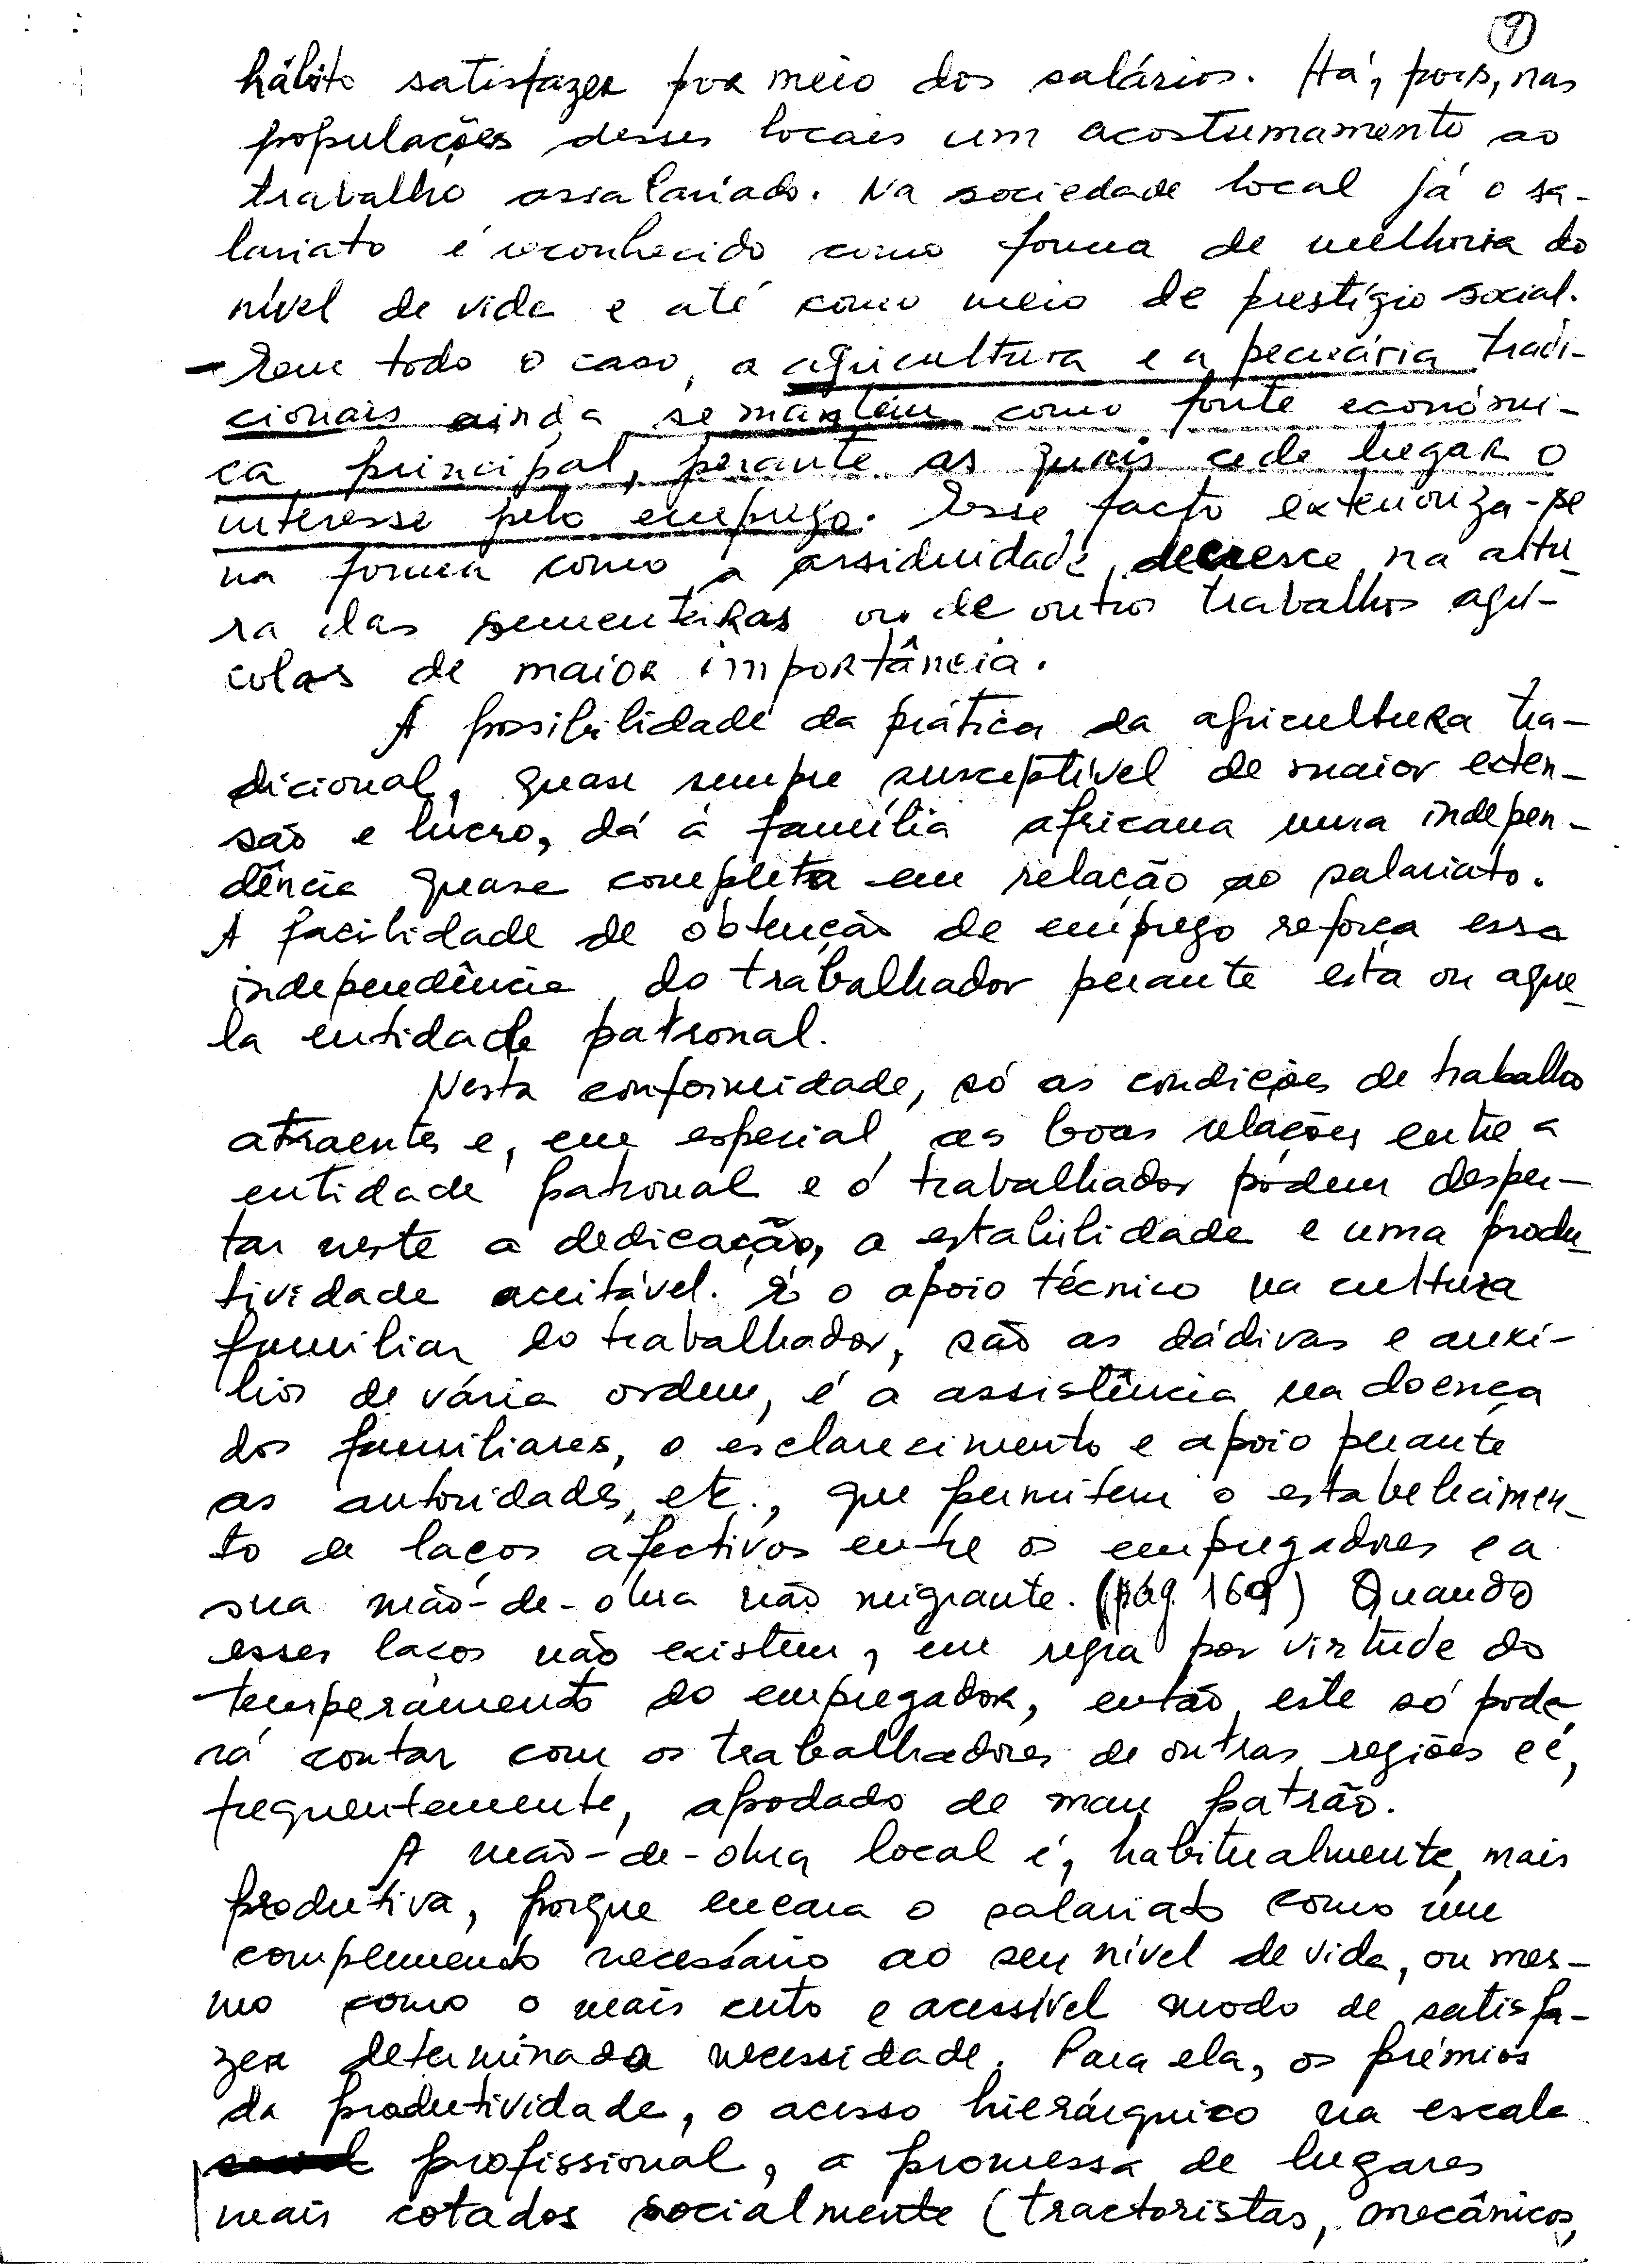 9
hábito satisfazer por meio dos salários. Há, pois, nas
populações desses locais um acostumamento ao
trabalho assalariado. Na sociedade local já o sa-
lariato é reconhecido como forma de melhoria do
nível de vida e até como meio de prestígio social.
- Em todo o caso, a agricultura e a pecuária tradi-
cionais ainda se mantém como fonte económi-
ca principal, perante as quais cede lugar o
interesse pelo emprego. Esse facto exterioriza-se
na forma como a assiduidade decresce na altu-
ra das sementeiras ou de outros trabalhos agrí-
colas de maior importância.
A possibilidade da prática da agricultura tra-
dicional, quase sempre susceptível de maior exten-
são e lucro, dá à família africana uma indepen-
dência quase completa em relação ao salariato.
A facilidade de obtenção de emprego reforça essa
independência do trabalhador perante esta ou aque-
la entidade patronal.
Nesta conformidade, só as condições de trabalho
atraentes e, em especial as boas relações entre a
entidade patronal e o trabalhador podem desper-
tar neste a dedicação, a estabilidade e uma produ-
tividade aceitável. É o apoio técnico na cultura
familiar do trabalhador, são as dádivas e auxí-
lios de vária ordem, é a assistência na doença
dos familiares, o esclarecimento e apoio perante
as autoridades, etc., que permitem o estabelecimen-
to de laços afectivos entre os empregadores e a
sua mão-de-obra não migrante. (pág. 169) Quando
esses laços não existem, em regra por virtude do
temperamento do empregador, então este só pode-
rá contar com os trabalhadores de outras regiões e é,
frequentemente, apodado de mau patrão.
A mão-de-obra local é, habitualmente, mais
produtiva, porque encara o salariato como um
complemento necessário ao seu nível de vida, ou mes-
mo como o mais certo e acessível modo de satisfa-
zer determinada necessidade. Para ela, os prémios
da produtividade, o acesso hierárquico na escala
profissional, a promessa de lugares
mais cotados socialmente (tractoristas, mecânicos,